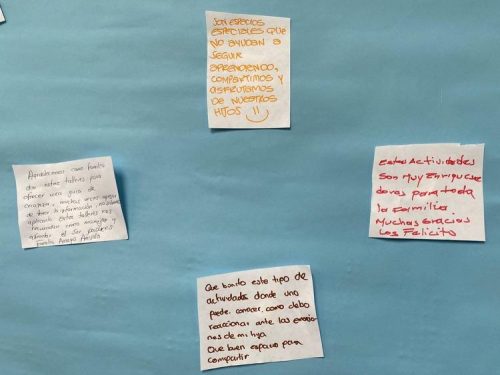 SON ESPACIOS
ESPECIALES QUE
NO AYUDAN A
SEGUIR
APRENDIENDO,
COMPARTIMOS Y
DISFRUTAMOS
DE NUESTROS
HIJOS
Agradecemos como familia
estos talleres para
ofrecer una guia de
muchas veces apesar
de tener la información
aplicarla estos talleres nos
recuerdan como manejar y
afrontar el ser padres
Familia Amaya
Estas Actividades
son muy Enriquece
doras para toda
la familia
Muchas Gracias
Los Felicito
Que bonito este tipo de
actividades donde uno
puede conocer, como debo
reaccionar ante las emocio
nes de mi hija
Que buen espacio para
compartir